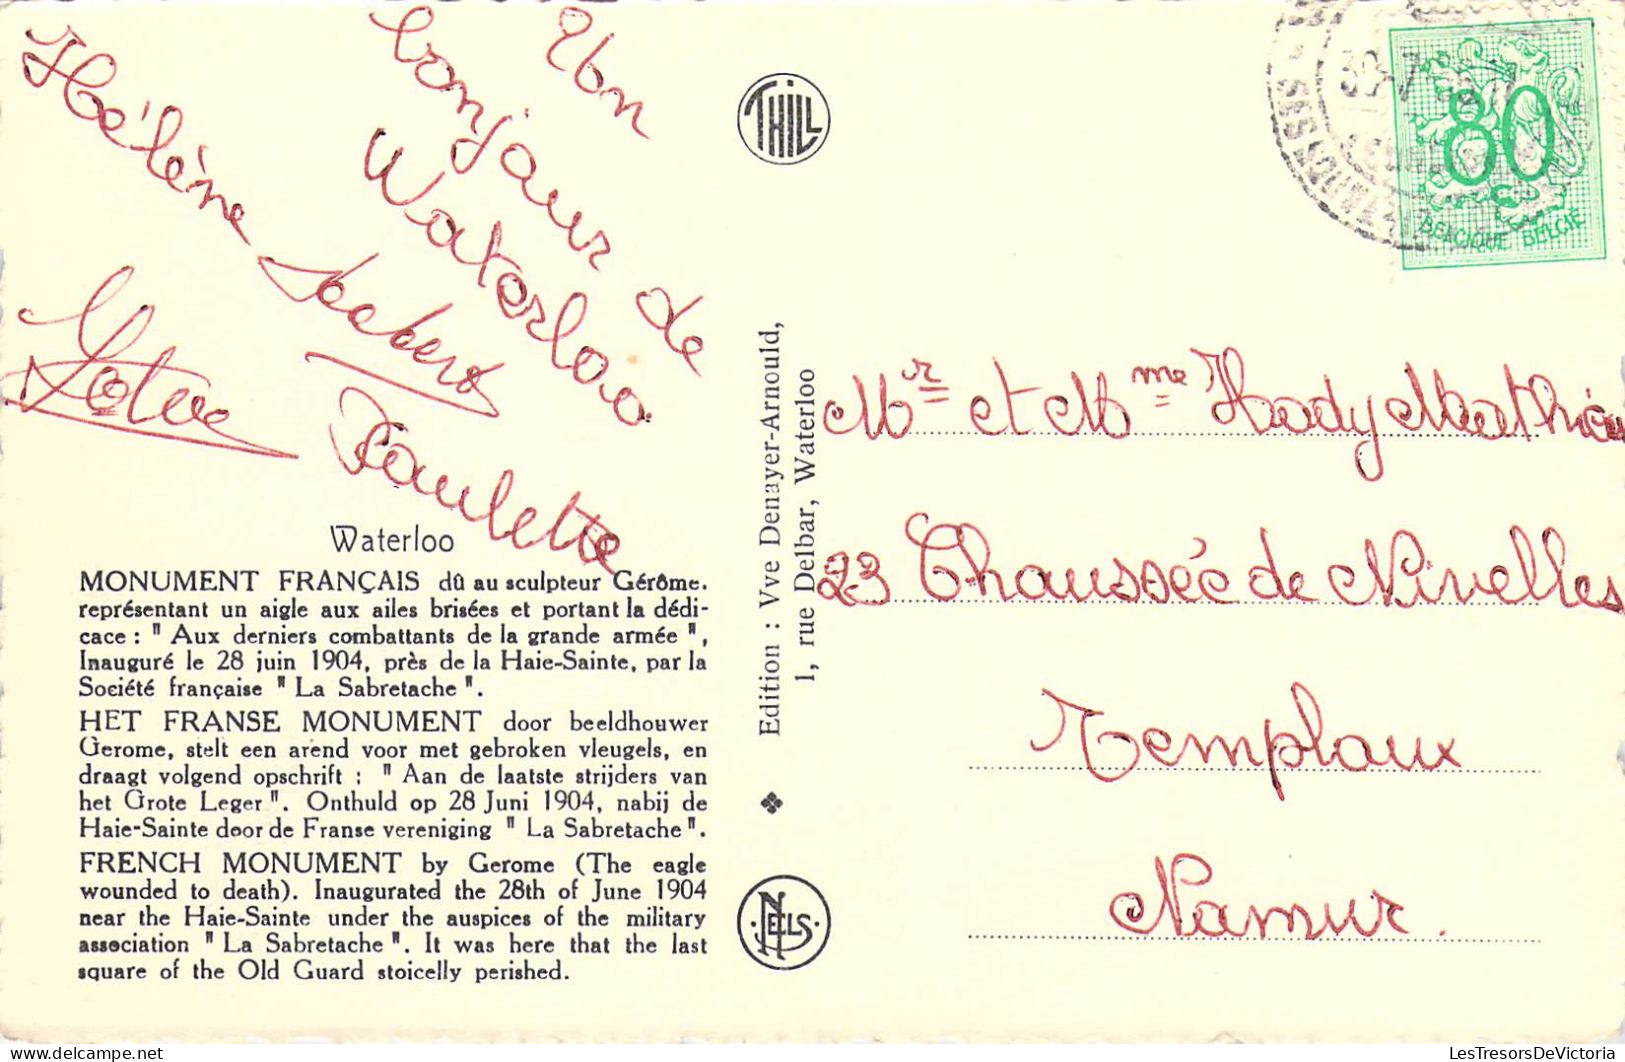 Un
bonjour de
Waterloo
Hélène
Paulette
THILL
80
BELGIQUE BELGIË
Mr et Mme Hody Mathieu
23 Chaussée de Nivelles
Temploux
Namur.
Edition : Vve Denayer-Arnould,
1, rue Delbar, Waterloo
NELS
Waterloo
MONUMENT FRANÇAIS dû au sculpteur Gérôme.
représentant un aigle aux ailes brisées et portant la dédi-
cace : " Aux derniers combattants de la grande armée ",
Inauguré le 28 juin 1904, près de la Haie-Sainte, par la
Société française " La Sabretache ".
HET FRANSE MONUMENT door beeldhouwer
Gerome, stelt een arend voor met gebroken vleugels, en
draagt volgend opschrift : " Aan de laatste strijders van
het Grote Leger ". Onthuld op 28 Juni 1904, nabij de
Haie-Sainte door de Franse vereniging " La Sabretache ".
FRENCH MONUMENT by Gerome (The eagle
wounded to death). Inaugurated the 28th of June 1904
near the Haie-Sainte under the auspices of the military
association " La Sabretache ". It was here that the last
square of the Old Guard stoicelly perished.
LesTresorsDeVictoria